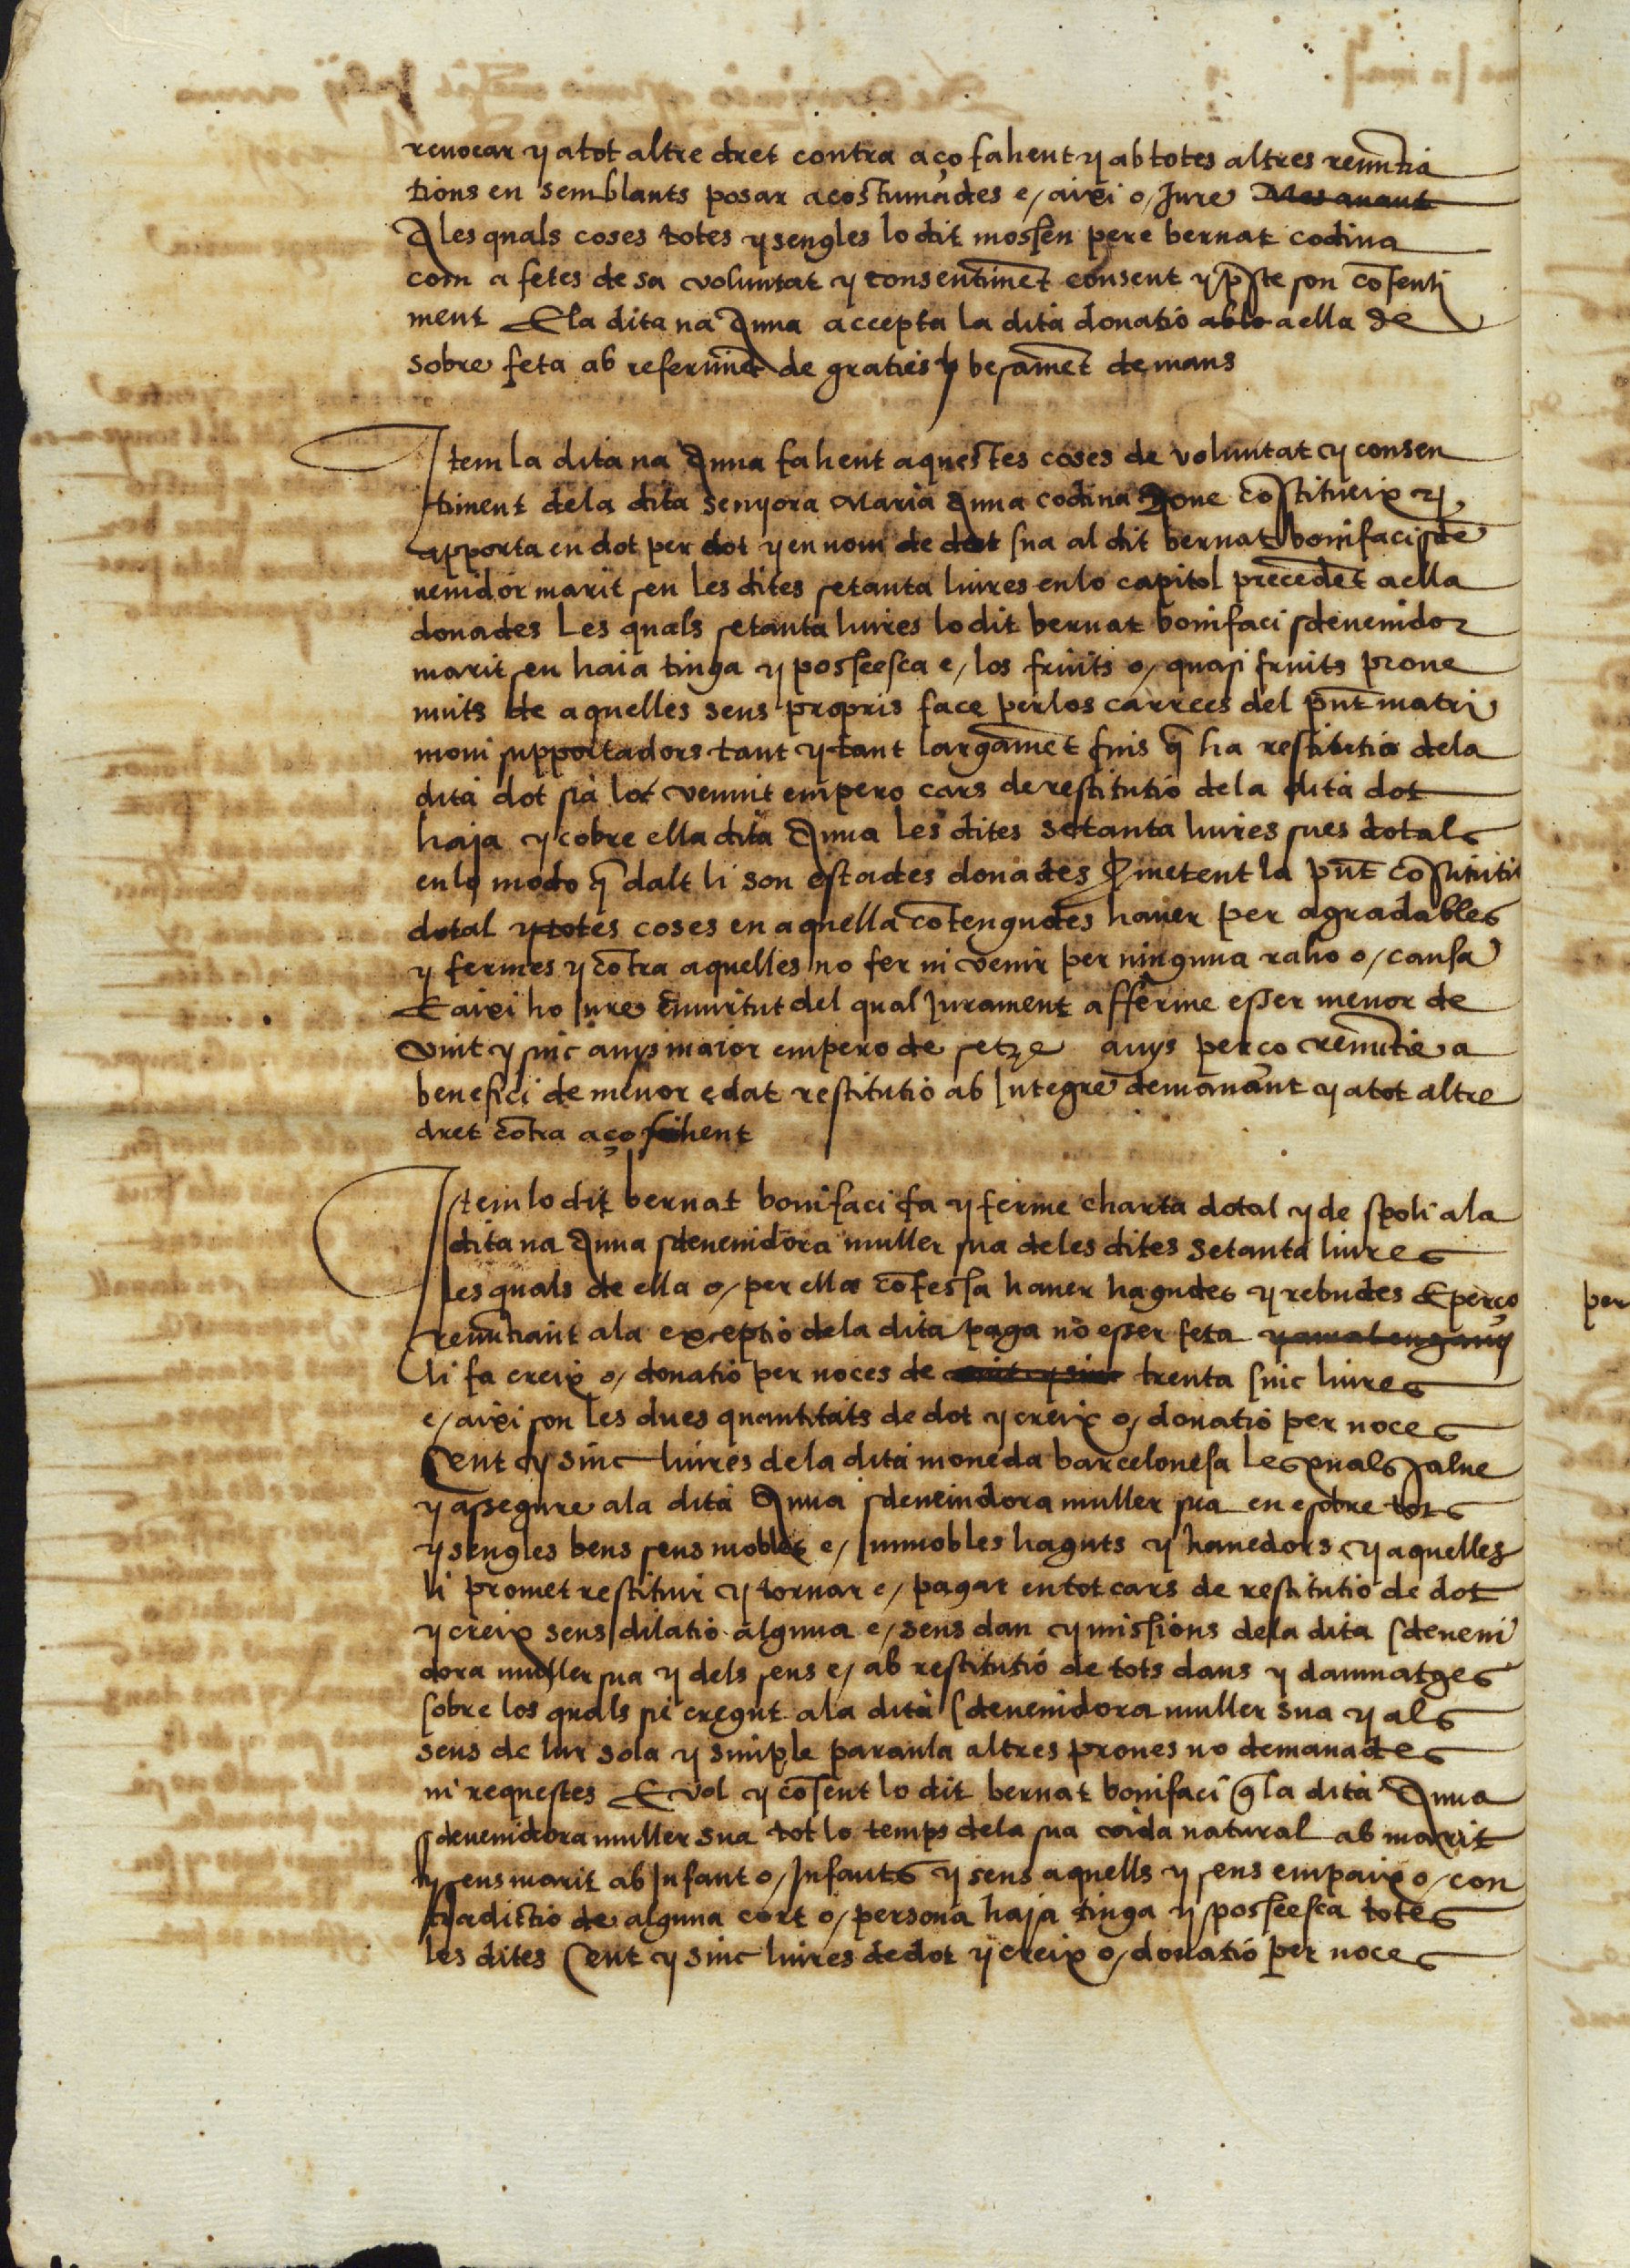 revocar y atot altre dret contra aço fahent y ab totes altres renūtia
tions en semblants posar acostumades e/ aixi o/ Jure Mes auant
A les quals coses totes y sengles lo dit mossen pere bernat codina
com a fetes de sa voluntat y consentimēt consent y p̄ste son cōsenti
ment E la dita na Anna accepta la dita donatio ablo a ella de
sobre feta ab referimēt de graties y besamēt de mans
Item la dita na Anna fahent aquestes coses de voluntat y consen
timent dela dita senyora Maria Anna codina Done cōstitueix y
apporta en dot per dot y en nom de dot sua al dit bernat bonifaci sde
uenidor marit seu les dites setanta liures en lo capitol precedēt a ella
donades Les quals setanta liures lo dit bernat bonifaci sdeuenidor
marit seu haia tinga y posseesca e/ los fruits o/ quasi fruits proue
nints de aquelles seus propris face per los carrecs del pn̄t matri
moni supportadors tant y tant largamēt fins q̄ ha restitutio dela
dita dot sia loc Venint empero cars de restitutio dela dita dot
haja y cobre ella dita Anna les dites setanta liures sues dotals
en lo modo q̄ dalt li son estades donades Prometent la pn̄t cōstitutio
dotal y totes coses en aquella cōtengudes hauer per agradables
y fermes y cōtra aquelles no fer ni venir per ninguna raho o/ causa
E aixi ho Jure En virtut del qual Jurament afferme esser menor de
vint y sinc anys maior empero de setze anys per ço renūtie a
benefici de menor edat restitutio ab Integre demanant y atot altre
dret cōtra aço fahent
Item lo dit bernat bonifaci fa y ferme charta dotal y de spoli ala
dita na Anna sdeuenidora muller sua deles dites setanta liures
les quals de ella o/ per ella cōfessa hauer hagudes y rebudes E per ço
renūtiant ala exceptio dela dita paga no esser feta y a mal engany
li fa creix o/ donatio per noces de vint y sinc trenta sinc liures
e/ aixi son les dues quantitats de dot y creix o/ donatio per noces
Cent y sinc liures dela dita moneda barcelonesa Les quals salue
y assegure ala dita Anna sdeuenidora muller sua en e sobre tots
y sengles bens seus mobles e/ Immobles haguts y hauedors y aquelles
li promet restituir y tornar e/ pagar en tot cars de restitutio de dot
y creix sens dilatio alguna e/ sens dan y missions dela dita sdeueni
dora muller sua y dels seus e/ ab restitutio de tots dans y damnatges
sobre los quals sie cregut ala dita sdeuenidora muller sua y als
seus de lur sola y simple paraula altres proues no demanades
ni requestes E vol y cōsent lo dit bernat bonifaci q̄ la dita Anna
sdeuenidora muller sua tot lo temps dela sua vida natural ab marit
y sens marit ab Infant o/ Infants y sens aquells y sens empaix o/ con
tradictio de alguna cort o/ persona haja tinga y posseesca totes
les dites Cent y sinc liures de dot y creix o/ donatio per noces
per